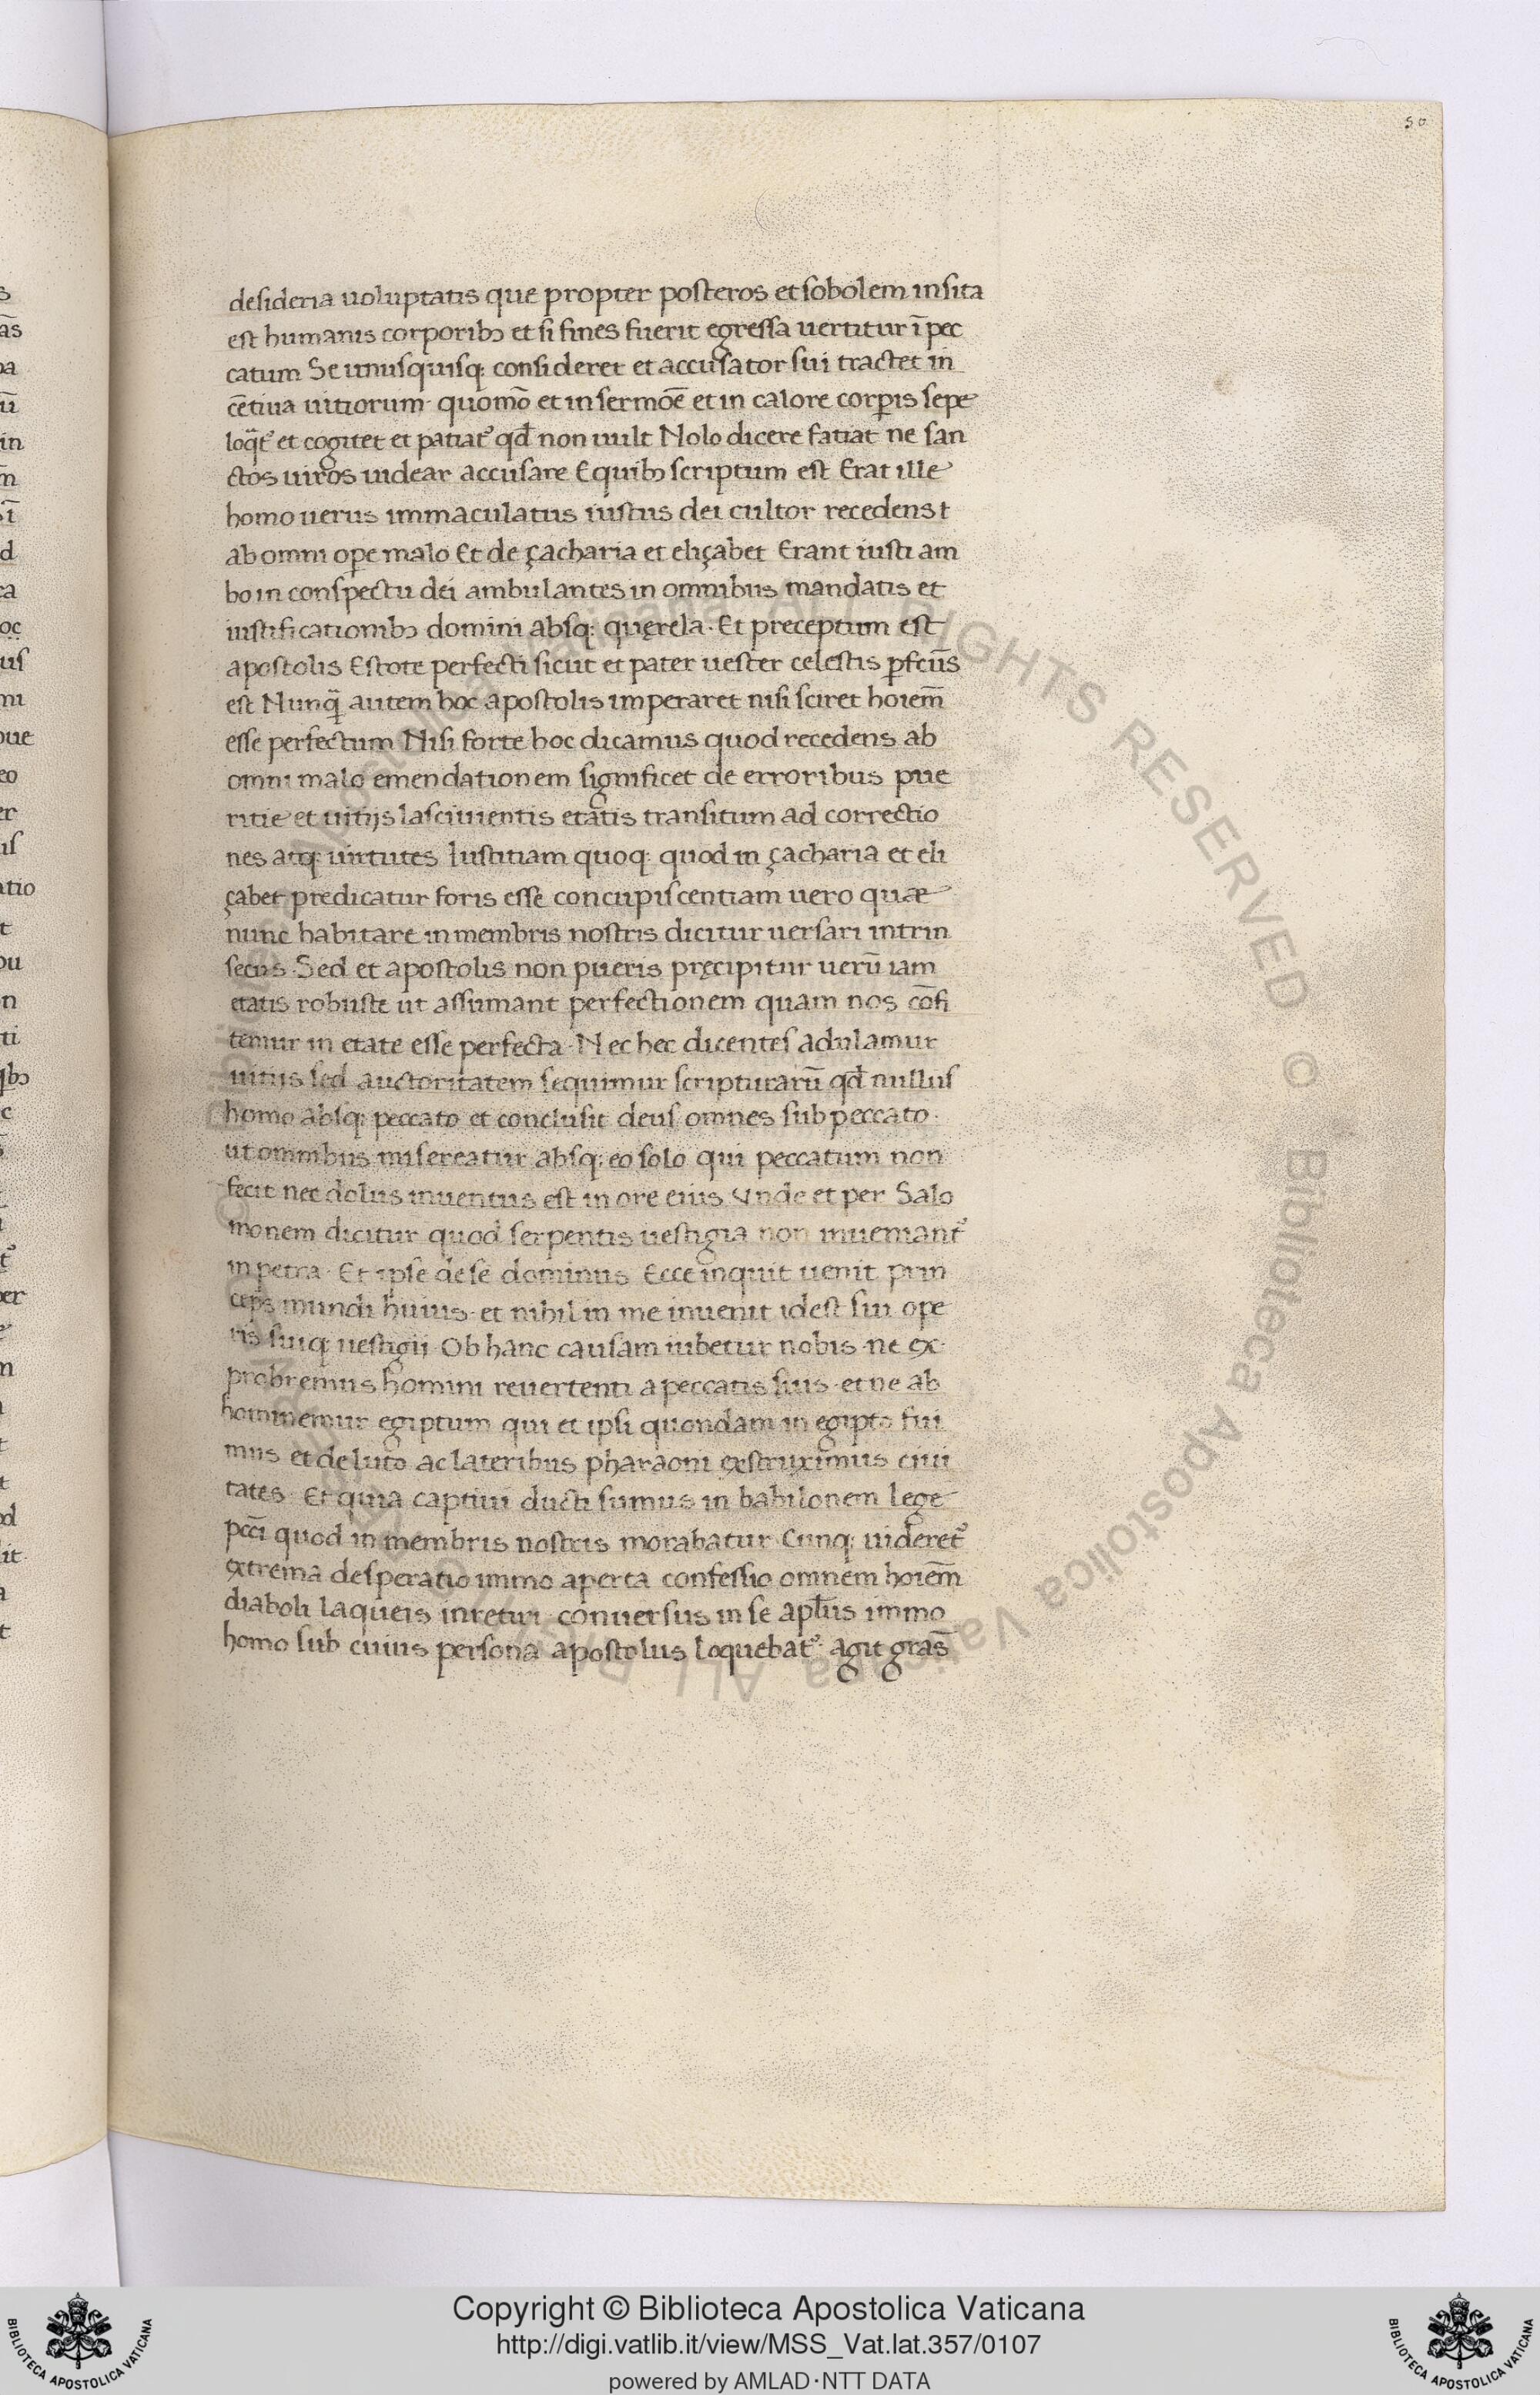 50
desideria uoluptatis que propter posteros et sobolem insita
est humanis corporibꝫ et si fines fuerit egressa uertitur ī pec
catum Se unusquisq; consideret et accusator sui tractet in
cētiua uitiorum · quomō et in sermōe et in calore corꝑis sepe
loq̄t᷒ et cogitet et patiat᷒ qd̄ non uult Nolo dicere fatiat ne san
ctos uiros uidear accusare E quibꝫ scriptum est Erat ille
homo uerus immaculatus iustus dei cultor recedens t
ab omni oꝑe malo Et de çacharia et eliçabet Erant iusti am
bo in conspectu dei ambulantes in omnibus mandatis et
iustificationibꝫ domini absq; quęrela · Et preceptum est
apostolis Estote perfecti sicut et pater uester celestis ꝑfcūs
est Nunq̄ autem hoc apostolis imperaret nisi sciret hoiem̄
esse perfectum Nisi forte hoc dicamus quod recedens ab
omni malo emendationem significet de erroribus pue
ritie et uitijs lasciuientis etatis transitum ad correctio
nes atq; uirtutes Iustitiam quoq; quod in çacharia et eli
çabet predicatur foris esse concupiscentiam uero quæ
nunc habitare in membris nostris dicitur uersari intrin
secus · Sed et apostolis non pueris pręcipitur uerū iam
etatis robuste ut assumant perfectionem quam nos cōfi
temur in etate esse perfecta · Nec hec dicentes adulamur
uitiis sed auctoritatem sequimur scripturarū qd̄ nullus
homo absq; peccato et conclusit deus omnes sub peccato ·
ut omnibus misereatur absq; eo solo qui peccatum non
fecit nec dolus inuentus est in ore eius Unde et per Salo
monem dicitur quod serpentis uestigia non inueniant᷒
in petra · Et ipse de se dominus Ecce inquit uenit prin
ceps mundi huius · et nihil in me inuenit idest sui ope
ris suiq; uestigii · Ob hanc causam iubetur nobis · ne ex
probremus homini reuertenti a peccatis suis · et ne ab
hominemur egiptum qui et ipsi quondam in egipto fui
mus et de luto ac lateribus pharaoni exstruximus ciui
tates · Et quia captiui ducti sumus in babilonem lege
pcc̄i quod in membris nostris morabatur Cunq; uideret᷒
extrema desperatio immo aperta confessio omnem hoiem̄
diaboli laqueis inretiri · conuersus in se apl̄us immo
homo sub cuius persona apostolus loquebat᷒ · agit gras̄
Copyright © Biblioteca Apostolica Vaticana
http://digi.vatlib.it/view/MSS_Vat.lat.357/0107
powered by AMLAD·NTT DATA
BIBLIOTECA APOSTOLICA VATICANA
BIBLIOTECA APOSTOLICA VATICANA